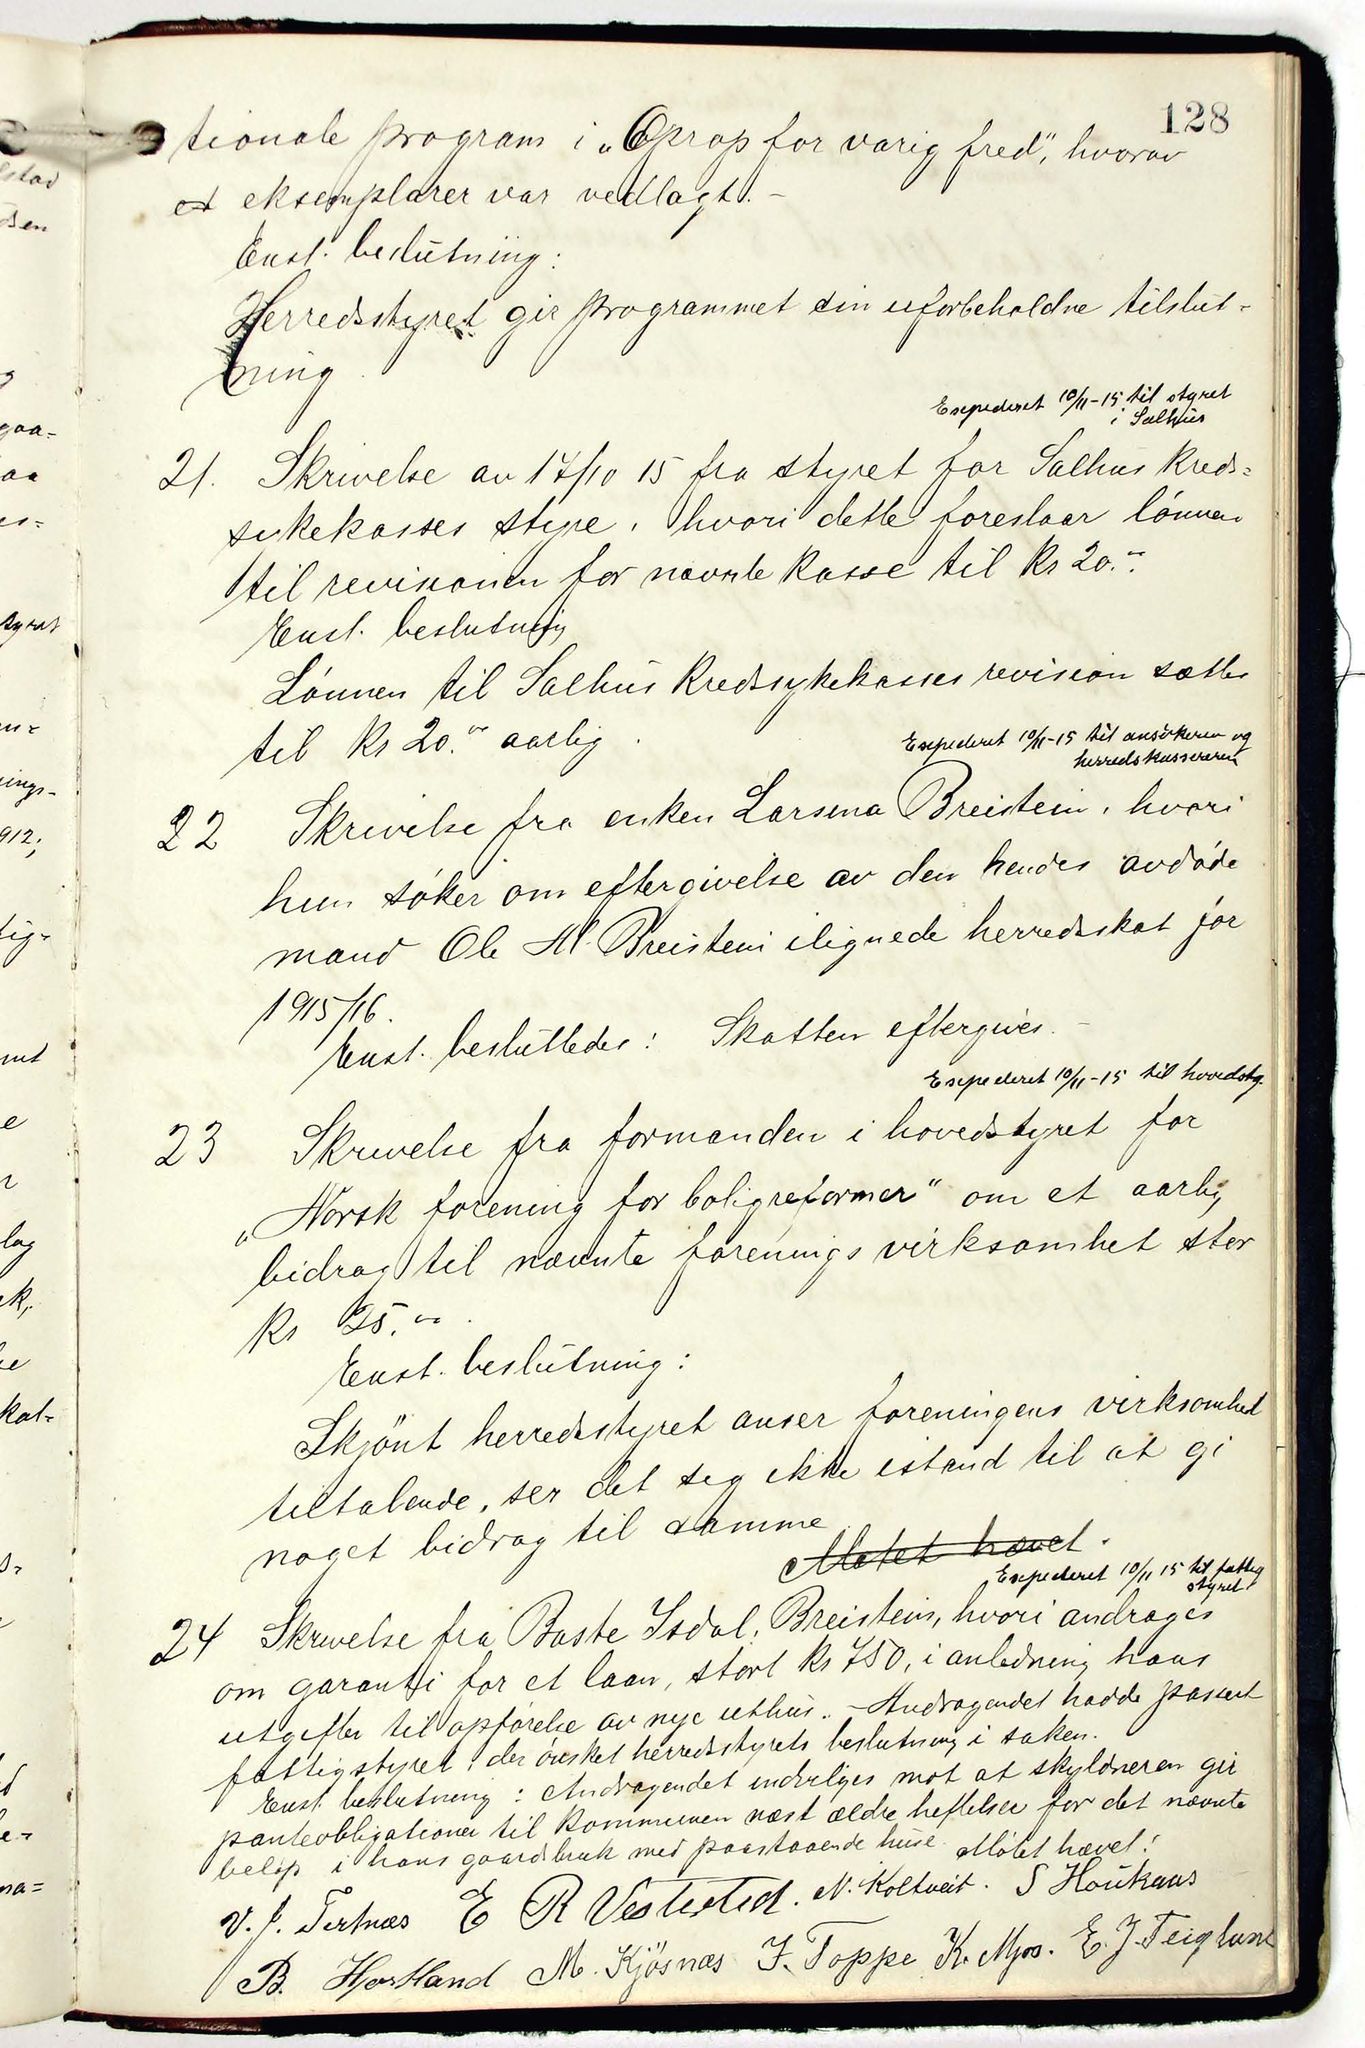 128
tionale program i „Oprop for varig fred", hvorav
et eksemplarer var vedlagt. -
Enst. beslutning:
Herredsstyret gir programmet sin uforbeholdne tilslut-
ning
Expederet 10/11-15 til styret
i Salhus
21. Skrivelse av 17/10 15 fra styret for Salhus kreds-
sykekasses styre, hvori dette foreslaar lønnen
til revisionen for nævnte kasse til kr 20.-
Enst. beslutning
Lønnen til Salhus kredssykekasses revision sættes
til kr 20.- aarlig.
Expederet 10/11-15 til ansökeren og
herredskassereren
22 Skrivelse fra enken Larsina Breistein, hvori
hun søker om eftergivelse av den hendes avdøde
mand Ole M. Breistein ilignede herredsskat for
1915/16.
Enst. besluttedes: Skatten eftergives. -
Expederet 10/11-15 til hovedsty.
23 Skrivelse fra formanden i hovedstyret for
„Norsk forening for boligreformer" om et aarlig
bidrag til nævnte forenings virksomhet stor
kr 25.-
Enst. beslutning:
Skjönt herredsstyret anser foreningens virksomhed
tiltalende, ser det seg ikke istand til at gi
noget bidrag til samme
Møtet hævet.
Expederet 10/11 15 til fattig
styret
24 Skrivelse fra Baste Isdal, Breistein, hvori andrages
om garanti for et laan, stort kr 750, i anledning hans
utgifter til opførelse av nye uthus. - Andragendet hadde passert
fattigstyret, der ønsket herredsstyrets beslutning i saken.
Enst. beslutning: Andragendet inderliges mot at skyldneren gir
panteobligationer til kommunen næst ældre heftelser for det nævnte
beløp i hans gaardsbruk med paastaaende huse. Møtet hævet!
V. J. Tertnæs E R Vestrheid. N. Koltveit. S Houkaas
B. Hordland M. Kjösnæs J. Toppe K. Mjøs. E. J. Teiglund